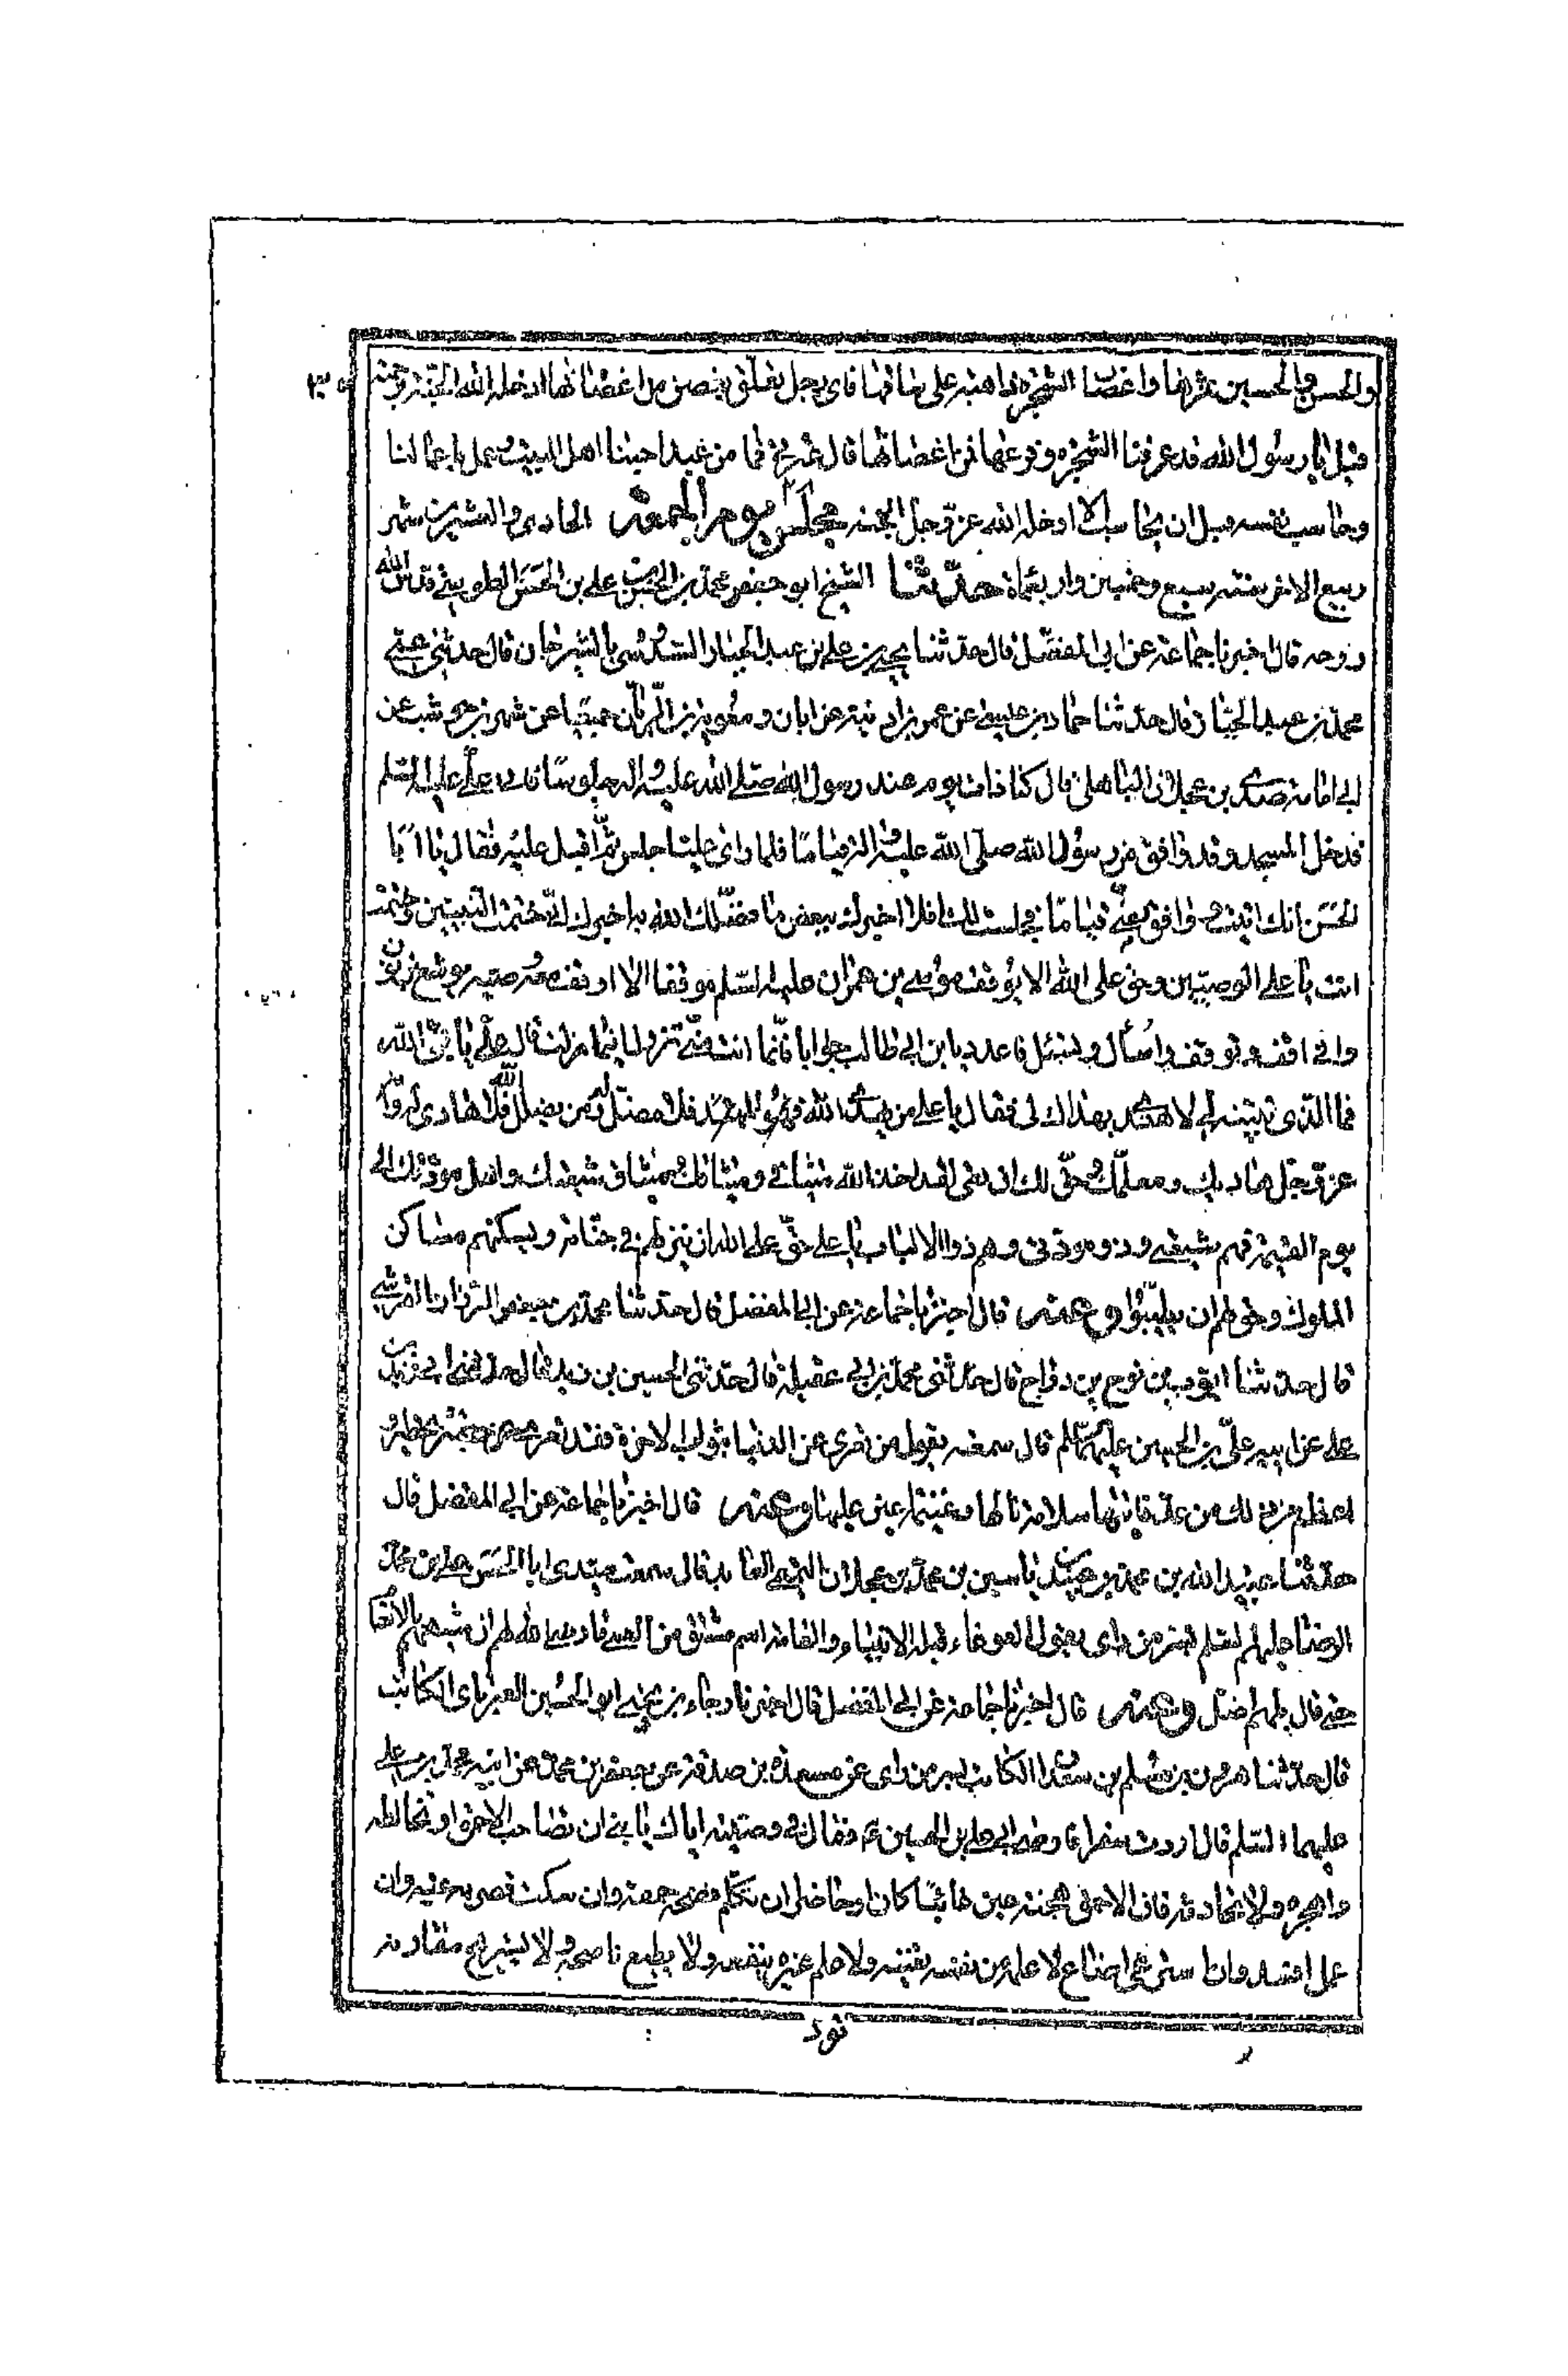 والحسن والحسين ثمرها واغصان الشجرة ذاهبة على ساقها فاى رجل تعلق بغصن من اغصانها ادخله الله الجنة برحمته
قيل يا رسول الله قد عرفنا الشجرة وفرعها فمن اغصانها قال عترتى فما من عبد احبنا اهل البيت وعمل باعمالنا
وحاسب نفسه قبل ان يحاسب الا ادخله الله عز وجل الجنة مجلس يوم الجمعة الحادى والعشرين شهر
ربيع الاخر سنة سبع وخمسين واربعمائة حدثنا الشيخ ابو جعفر محمد بن الحسن بن على بن الحسن الطوسى قدس الله
روحه قال اخبرنا جماعة عن ابى المفضل قال حدثنا يحيى بن على بن عبد الجبار السدوسى بالشيرجان قال حدثنى عمى
محمد بن عبد الجبار قال حدثنا حماد بن عيسى عن عمر بن اذينة عن ابان ومعوية بن الريان جميعا عن شهر بن حوشب عن
ابى امامة صدى بن عجلان الباهلى قال كنا ذات يوم عند رسول الله صلى الله عليه واله جلوسا فاء على عليه السلم
فدخل المسجد وقد وافق من رسول الله صلى الله عليه واله قياما فلما راى عليا جلس ثم اقبل عليه فقال يا ابا
الحسن انك اتيتنى ووافق منى قياما فجلست لك افلا اخبرك ببعض ما فضلك الله به اخبرك انى ختمت النبيين وختمت
انت يا على الوصيين وحق على الله الا يوقف موسى بن عمران عليه السلم موقفا الا اوقف معه وصيه يوشع بن نون
وانى اقف وتوقف واسأل وتسئل فاعدد يا بن ابى طالب جوابا فانما انت منى تزول اينما زلت قال على يا نبى الله
فما الذى تبينه لى لاهتدى بهداك لى فقال يا على من يهدى الله فهو المهتد فلا مضل له ومن يضلل الله فلا هادى له وانه
عز وجل هاديك ومعلمك وحق لك ان تعى لقد اخذ الله ميثاقى وميثاقك وميثاق شيعتك واهل مودتك الى
يوم القيمة فهم شيعتى وذوو مودتى وهم ذوا الالباب يا على حق على الله ان ينزلهم فى جناته ويسكنهم مساكن
الملوك وحق لهم ان يطيبوا وعنه قال اخبرنا جماعة عن ابى المفضل قال حدثنا محمد بن جعفر الرزاز القرشى
قال حدثنا ايوب بن نوح بن دراج قال حدثنى محمد بن ابى عقيلة قال حدثنى الحسين بن زيد قال حدثنى ابى زيد بن
على عن ابيه على بن الحسين عليهم السلم قال سمعته يقول من تعزى عن الدنيا بثواب الاخرة فقد تعزى عن حقير بخطير و
اعظم من ذلك من عد فائتها سلامة نالها وغنيمة اعين عليها وعنه قال اخبرنا جماعة عن ابى المفضل قال
حدثنا عبيد الله بن محمد بن عبيد بن ياسين بن محمد بن عجلان التميمى العابد قال سمعت سيدى ابا الحسن على بن محمد بن
الرضا عليهم السلم بسر من راى يقول الغوغاء قتلة الانبياء والعامة اسم مشتق من العمى ما رضى الله لهم ان شبههم بالانعام
حتى قال بل هم اضل وعنه قال اخبرنا جماعة عن ابى المفضل قال اخبرنا رجاء بن يحيى ابو الحسين العبرتاى الكاتب
قال حدثنا هرون بن مسلم بن سعدان الكاتب بسر من راى عن مسعدة بن صدقة عن جعفر بن محمد عن ابيه محمد بن على
عليهما السلم قال اردت سفرا فاوصى ابى على بن الحسين ع فقال فى وصيته اياك يا بنى ان تصاحب الاحمق او تخالطه
واهجره ولا تحادثه فان الاحمق هجنة عين غائبا كان او حاضرا ان تكلم فضحه حمقه وان سكت قصر به عيه وان
عمل افسد وان استرعى اضاع لا علمه من نفسه يغنيه ولا علم غيره ينفعه ولا يطيع ناصحه ولا يستريح مقارنه
تود